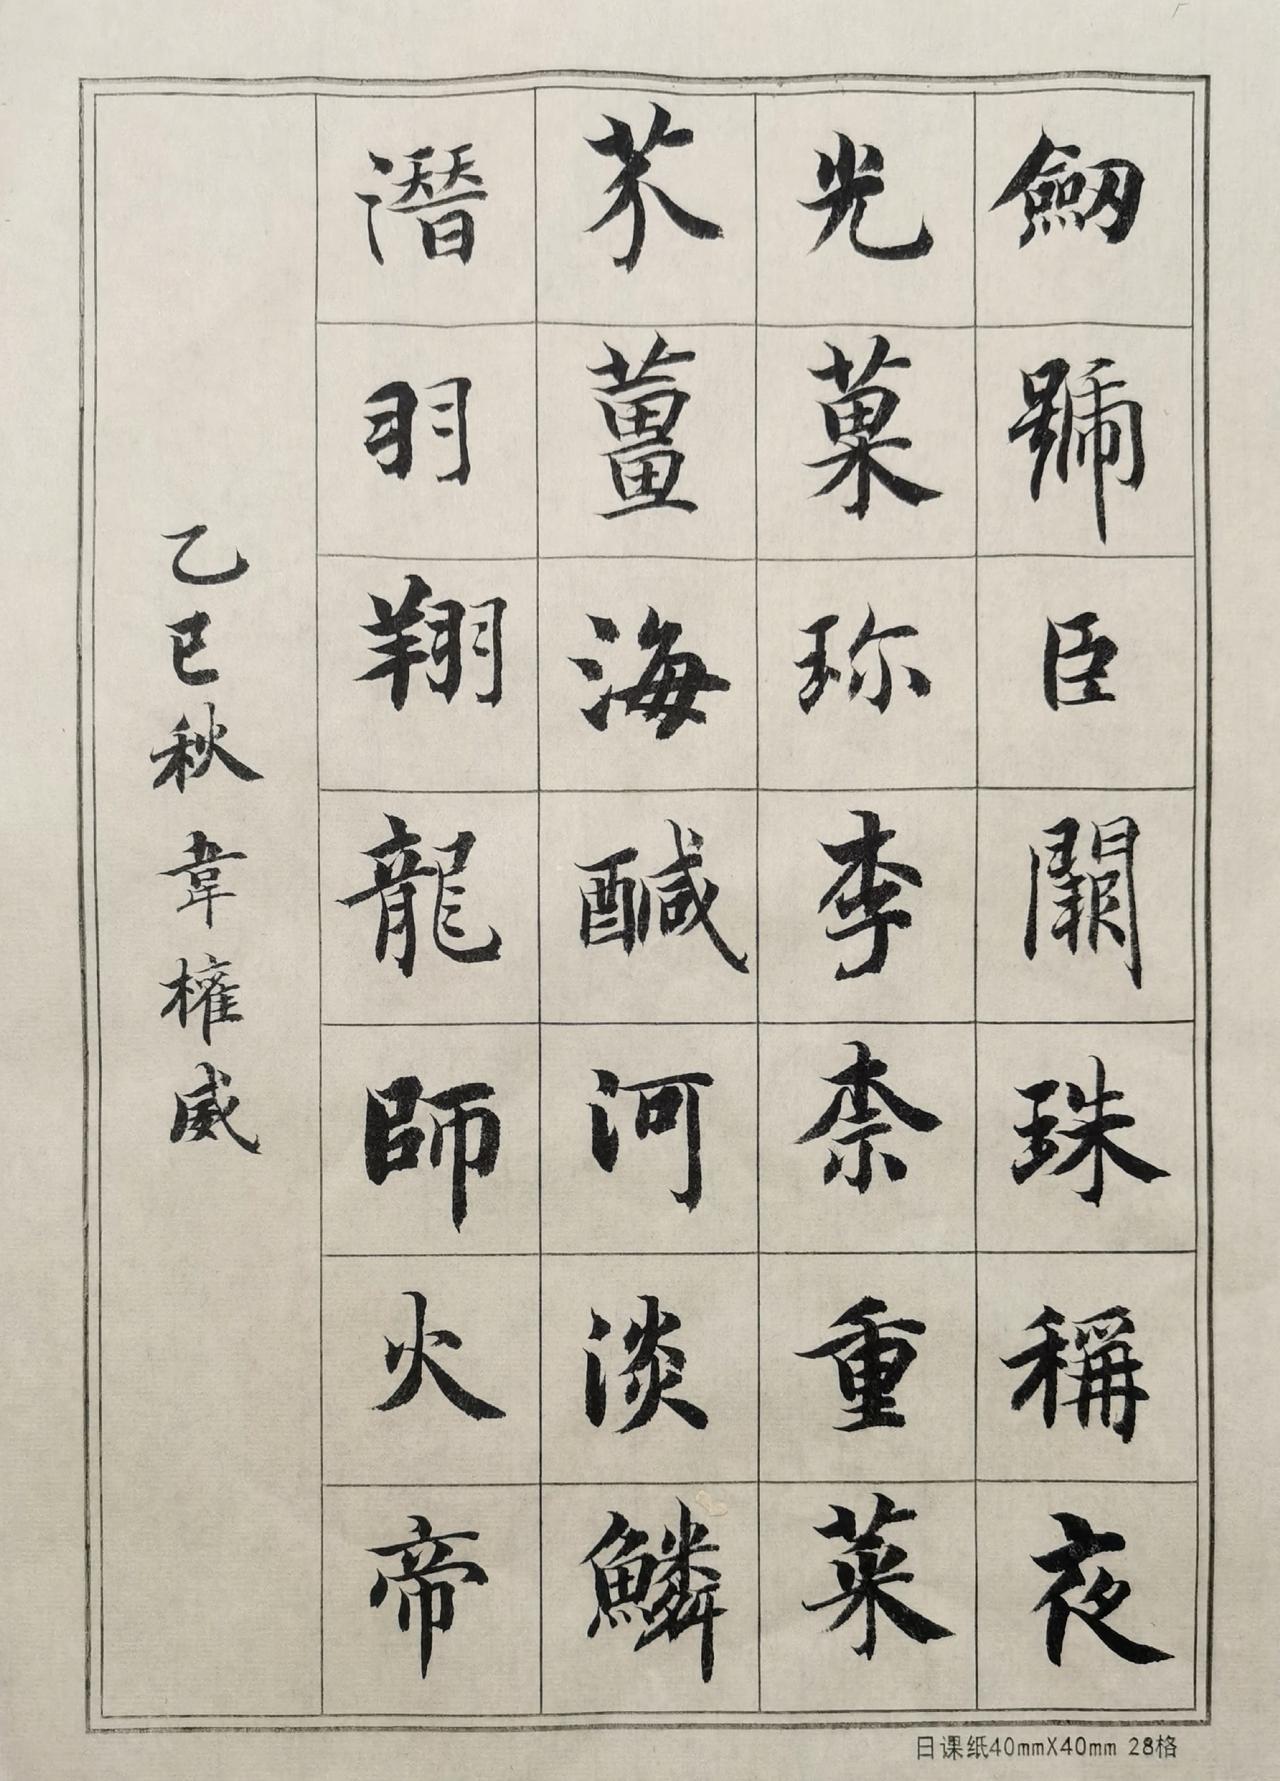 劒號臣闕珠稱夜
光菓珎李柰重菜
芥薑海鹹河淡鱗
潛羽翔龍師火帝
乙巳秋韋權威
日课纸40mmX40mm 28格